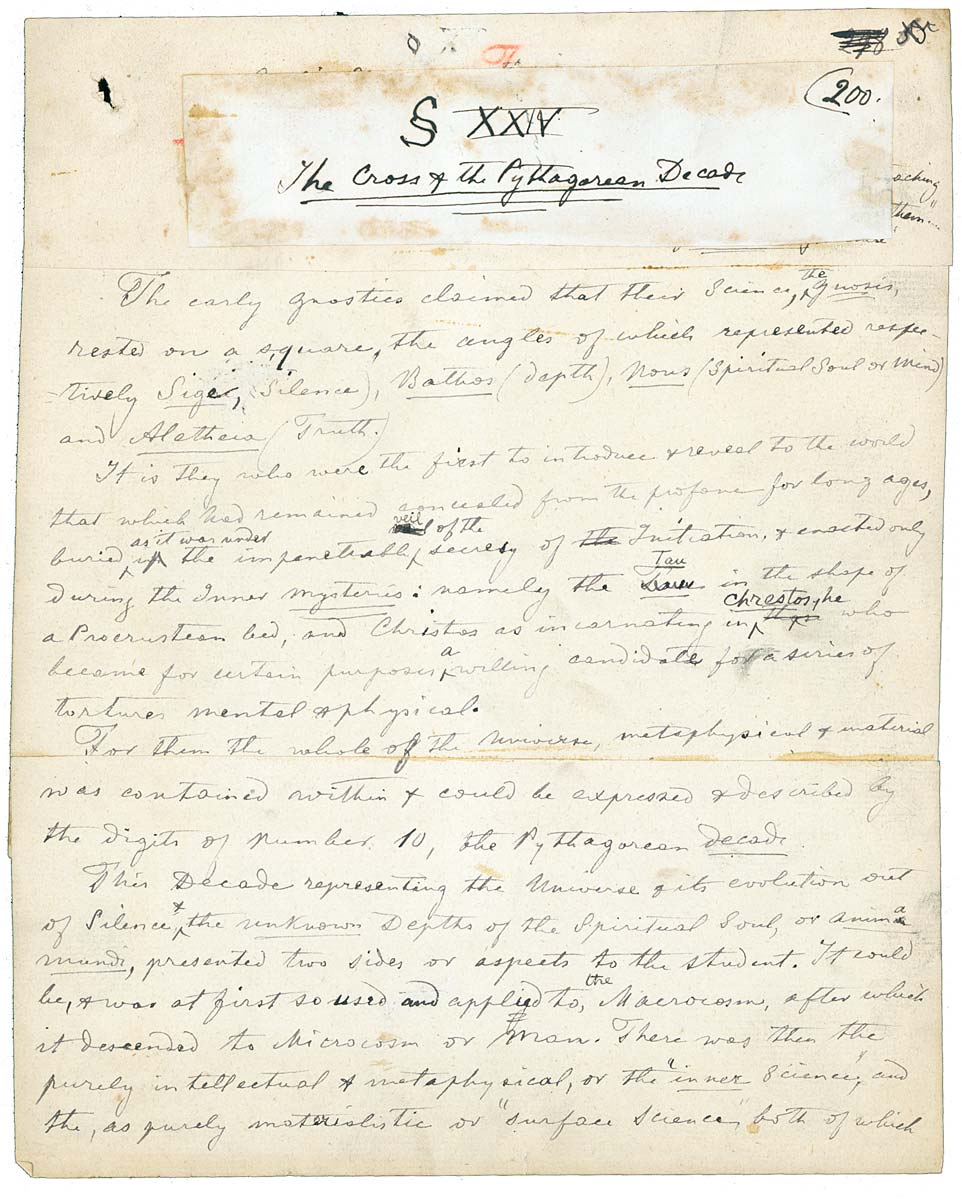 200.
§ XXIV
The Cross & the Pythagorean Decade
aching
them."
The early Gnostics claimed that their Science, the Gnosis,
rested on a square, the angles of which represented respec-
tively Sige, (Silence), Bathos (depth), Nous (Spiritual Soul or Mind)
and Aletheia (Truth.)
It is they who were the first to introduce & reveal to the world
that which had remained concealed from the profane for long ages,
buried, as it was under the impenetrable veil of the secresy of the Initiation, & enacted only
during the Inner mysteries: namely the Tau in the shape of
a Procrustean bed, and Christos as incarnating in Chrestos, he who
became for certain purposes a willing candidate for a series of
tortures mental & physical.
For them the whole of the Universe, metaphysical & material
was contained within & could be expressed & described by
the digits of number 10, the Pythagorean decade.
This Decade representing the Universe & its evolution out
of Silence & the unknown Depths of the Spiritual Soul, or anima
mundi, presented two sides or aspects to the student. It could
be, & was at first so used and applied to the Macrocosm, after which
it descended to Microcosm or Man. There was then the
purely intellectual & metaphysical, or the "inner Science", and
the, as purely materialistic or "surface science", both of which